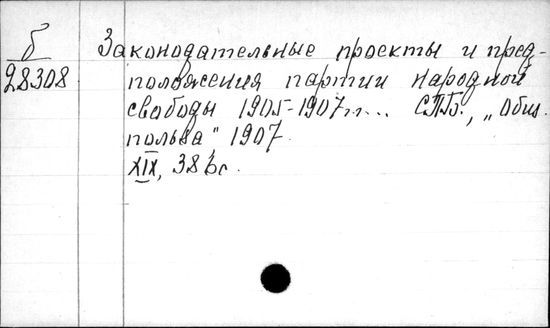 Б
28308
Законодательные проекты и пред-
положения партии народной
свободы 1905-1907 гг... СПБ., „Общ.
польза", 1907.
XIX, 383 с.